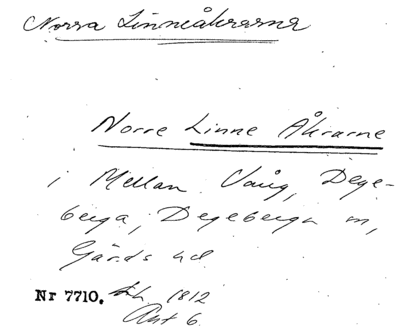 Norra Linneåkrarna
Norre Linne Åkrarne
i Mellan Vång, Dege-
berga, Degeberga m,
Gärds hd
Nr 7710. 1812
Akt 6.